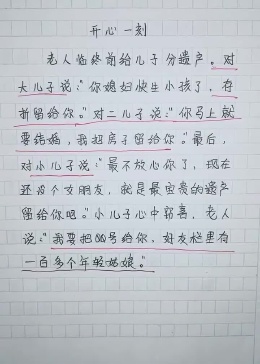 开心一刻
老人临终前给儿子分遗产。对
大儿子说:"你媳妇快生小孩了,存
折留给你。"对二儿子说:"你马上就
要结婚,我把房子留给你。"最后,
对小儿子说:"最不放心你了,现在
还没个女朋友,就是最宝贵的遗产
留给你吧。"小儿子心中窃喜,老人
说:"我要把QQ号给你,好友栏里有
一百多个年轻姑娘。"